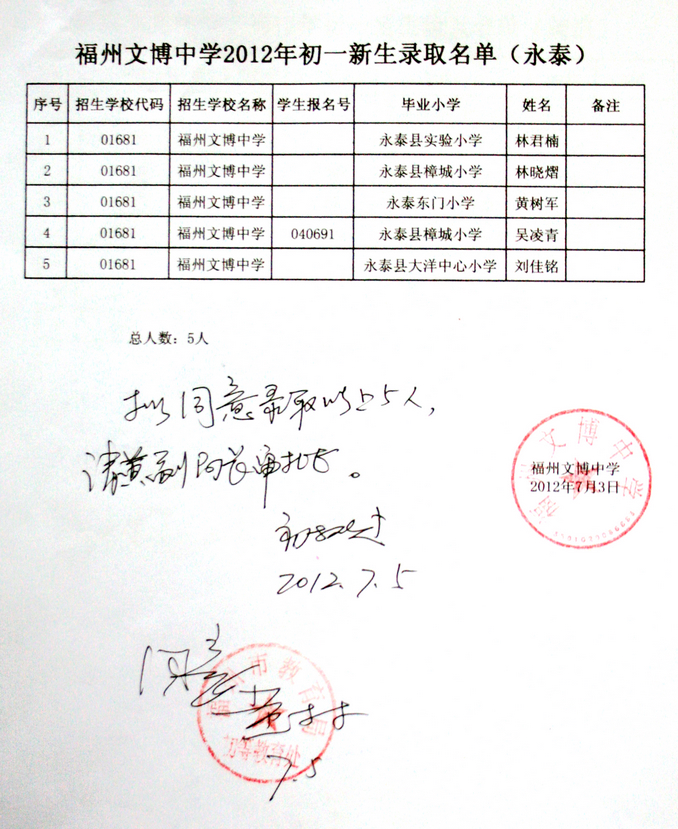 福州文博中学2012年初一新生录取名单（永泰）
序号 招生学校代码 招生学校名称 学生报名号 毕业小学 姓名 备注
1 01681 福州文博中学 永泰县实验小学 林君楠
2 01681 福州文博中学 永泰县樟城小学 林晓熠
3 01681 福州文博中学 永泰东门小学 黄树军
4 01681 福州文博中学 040691 永泰县樟城小学 吴凌青
5 01681 福州文博中学 永泰县大洋中心小学 刘佳铭
总人数：5人
拟同意录取以上5人，
请黄副局长审批。
福州文博中学
福州文博中学
2012年7月3日
2012.7.5
同意
福州市教育局
初等教育处
7.5